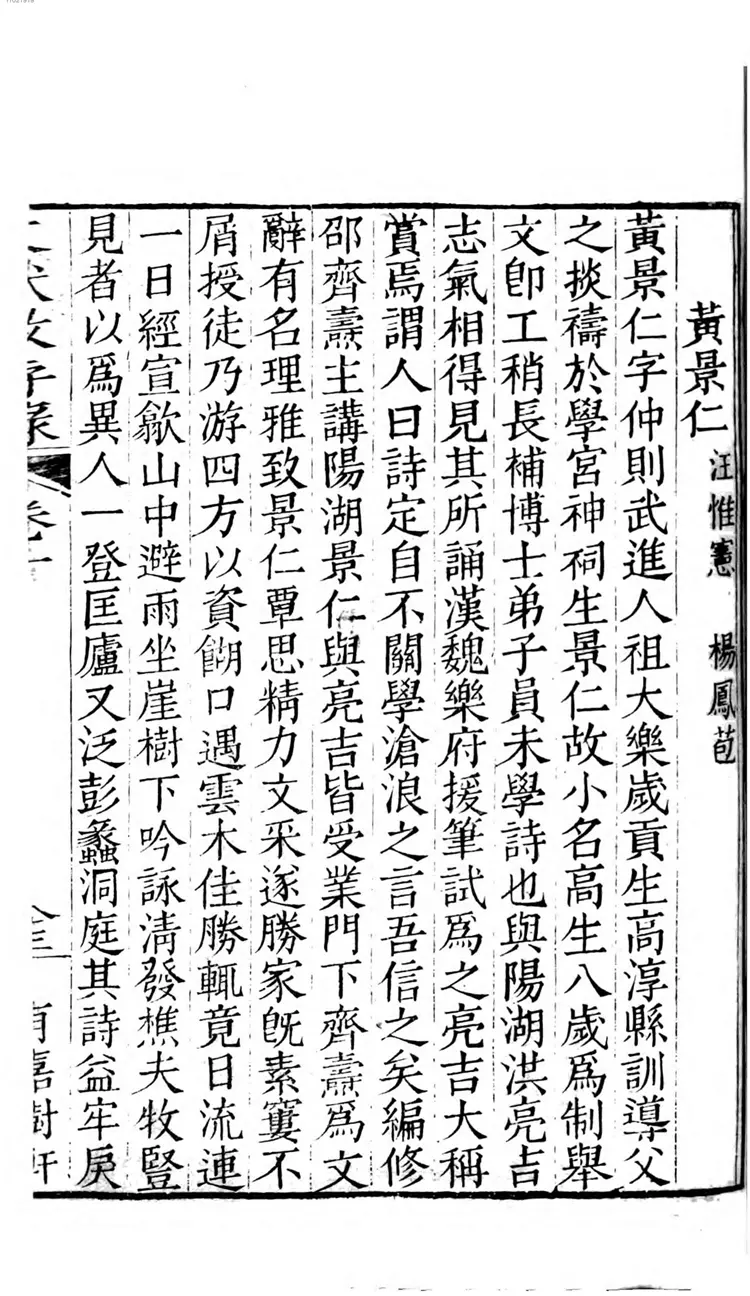 黃景仁 汪惟憲 楊鳳苞
黃景仁字仲則武進人祖大樂歲貢生高淳縣訓導父
之掞禱於學宮神祠生景仁故小名高生八歲爲制舉
文卽工稍長補博士弟子員未學詩也與陽湖洪亮吉
志氣相得見其所誦漢魏樂府援筆試爲之亮吉大稱
賞焉謂人曰詩定自不關學滄浪之言吾信之矣編修
邵齊燾主講陽湖景仁與亮吉皆受業門下齊燾爲文
辭有名理雅致景仁覃思精力文采遂勝家旣素窶不
屑授徒乃游四方以資餬口遇雲木佳勝輒竟日流連
一日經宣歙山中避雨坐崖樹下吟詠淸發樵夫牧豎
見者以爲異人一登匡廬又泛彭蠡洞庭其詩益牢戾
卷十 有嘉樹軒